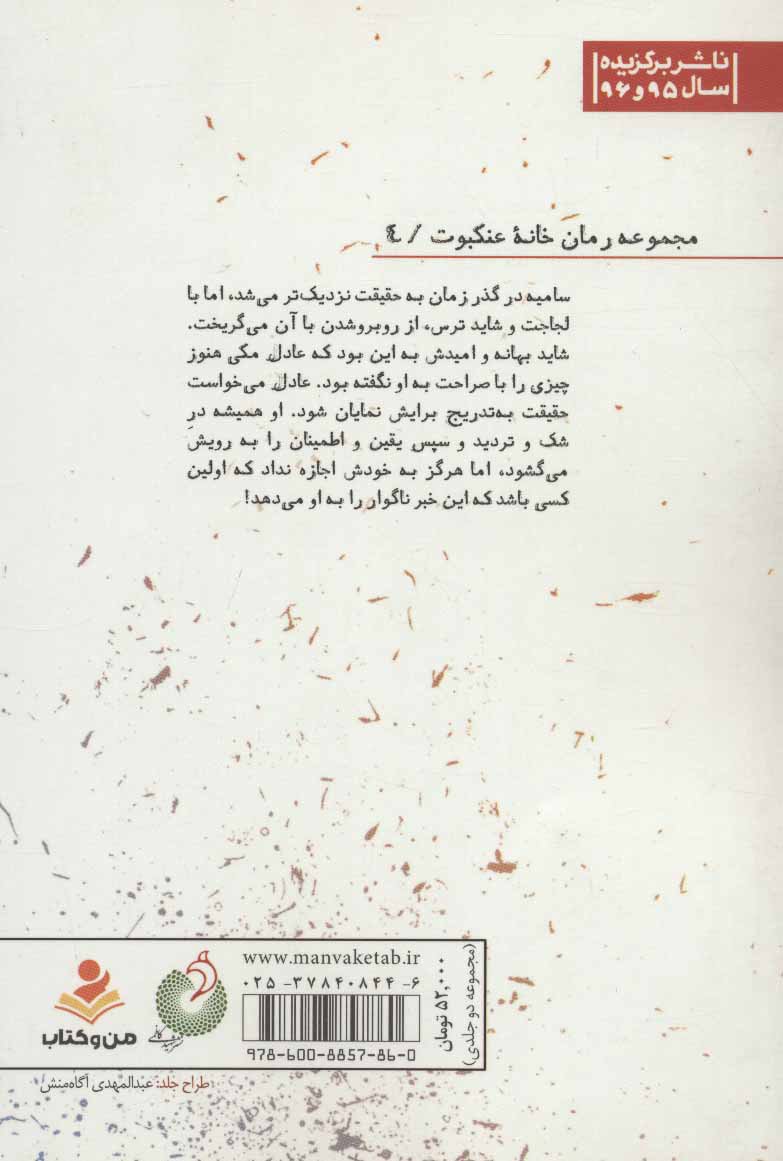 ناشر برگزیده
سال ۹۵ و ۹۶
مجموعه رمان خانهٔ عنکبوت / ٤
سامیه در گذر زمان به حقیقت نزدیک‌تر می‌شد، اما با
لجاجت و شاید ترس، از روبروشدن با آن می‌گریخت.
شاید بهانه و امیدش به این بود که عادل مکی هنوز
چیزی را با صراحت به او نگفته بود. عادل می‌خواست
حقیقت به‌تدریج برایش نمایان شود. او همیشه درِ
شک و تردید و سپس یقین و اطمینان را به رویش
می‌گشود، اما هرگز به خودش اجازه نداد که اولین
کسی باشد که این خبر ناگوار را به او می‌دهد!
www.manvaketab.ir
۰۲۵-۳۷۸۴۰۸۴۴-۶
978-600-8857-86-0
۵۲,۰۰۰ تومان
(مجموعه دو جلدی)
من و کتاب
طراح جلد: عبدالمهدی آگاه‌منش